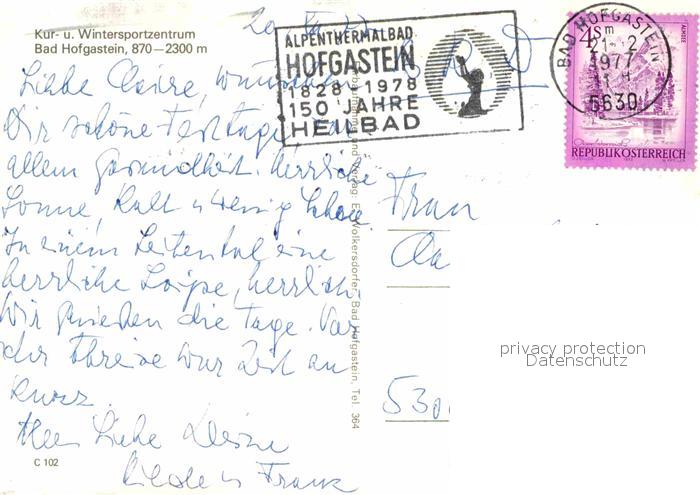 Kur- u. Wintersportzentrum
Bad Hofgastein, 870—2300 m
ALPENTHERMALBAD
HOFGASTEIN
1828-1978
150 JAHRE
HEILBAD
BAD HOFGASTEIN
21.12
1977
5630
4S
REPUBLIK ÖSTERREICH
Liebe Claire,
Dir schöne Festtage,
allem Gesundheit. Herrliche
Sonne, kalt u wenig
In einem Seitental eine
herrliche Loipe, herrlich
Wir genießen die Tage. Vor
der Abreise war Zeit
kurz.
Alles Liebe Deine
u Franz
Frau
Cla
530
Verlag: E. Volkersdorfer, Bad Hofgastein, Tel. 364
C 102
privacy protection
Datenschutz